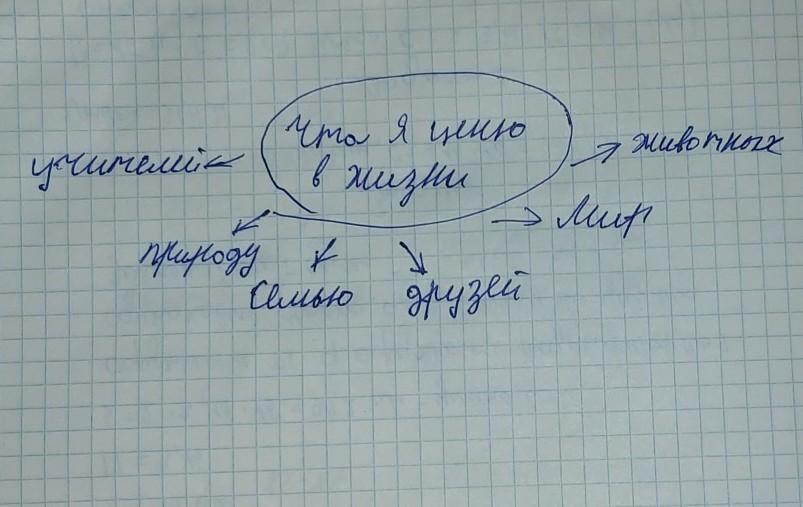 Что я ценю
в жизни
учителей
животных
Мир
природу
Семью
друзей